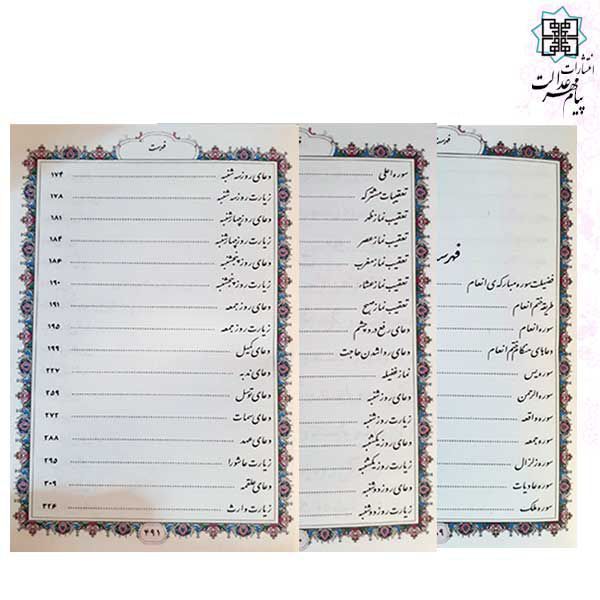 انتشارات
پیام مهر عدالت
فهرست
فضیلت سوره مبارکه‌ی انعام
طریقه ختم انعام
سوره انعام
دعاهای هنگام ختم انعام
سوره یس
سوره الرحمن
سوره واقعه
سوره جمعه
سوره زلزال
سوره عادیات
سوره ملک
سوره اعلی
تعقیبات مشترکه
تعقیب نماز ظهر
تعقیب نماز عصر
تعقیب نماز مغرب
تعقیب نماز عشاء
تعقیب نماز صبح
دعای رفع درد چشم
دعای روا شدن حاجت
نماز غفیله
دعای روز شنبه
زیارت روز شنبه
دعای روز یکشنبه
زیارت روز یکشنبه
دعای روز دوشنبه
زیارت روز دوشنبه
فهرست
دعای روز سه شنبه ۱۷۴
زیارت روز سه شنبه ۱۷۸
دعای روز چهارشنبه ۱۸۱
زیارت روز چهارشنبه ۱۸۴
دعای روز پنجشنبه ۱۸۶
زیارت روز پنجشنبه ۱۹۰
دعای روز جمعه ۱۹۱
زیارت روز جمعه ۱۹۵
دعای کمیل ۱۹۹
دعای ندبه ۲۲۷
دعای توسل ۲۵۹
دعای سمات ۲۷۲
دعای عهد ۲۸۸
زیارت عاشورا ۲۹۵
دعای علقمه ۳۰۹
زیارت وارث ۳۲۴
۴۹۱